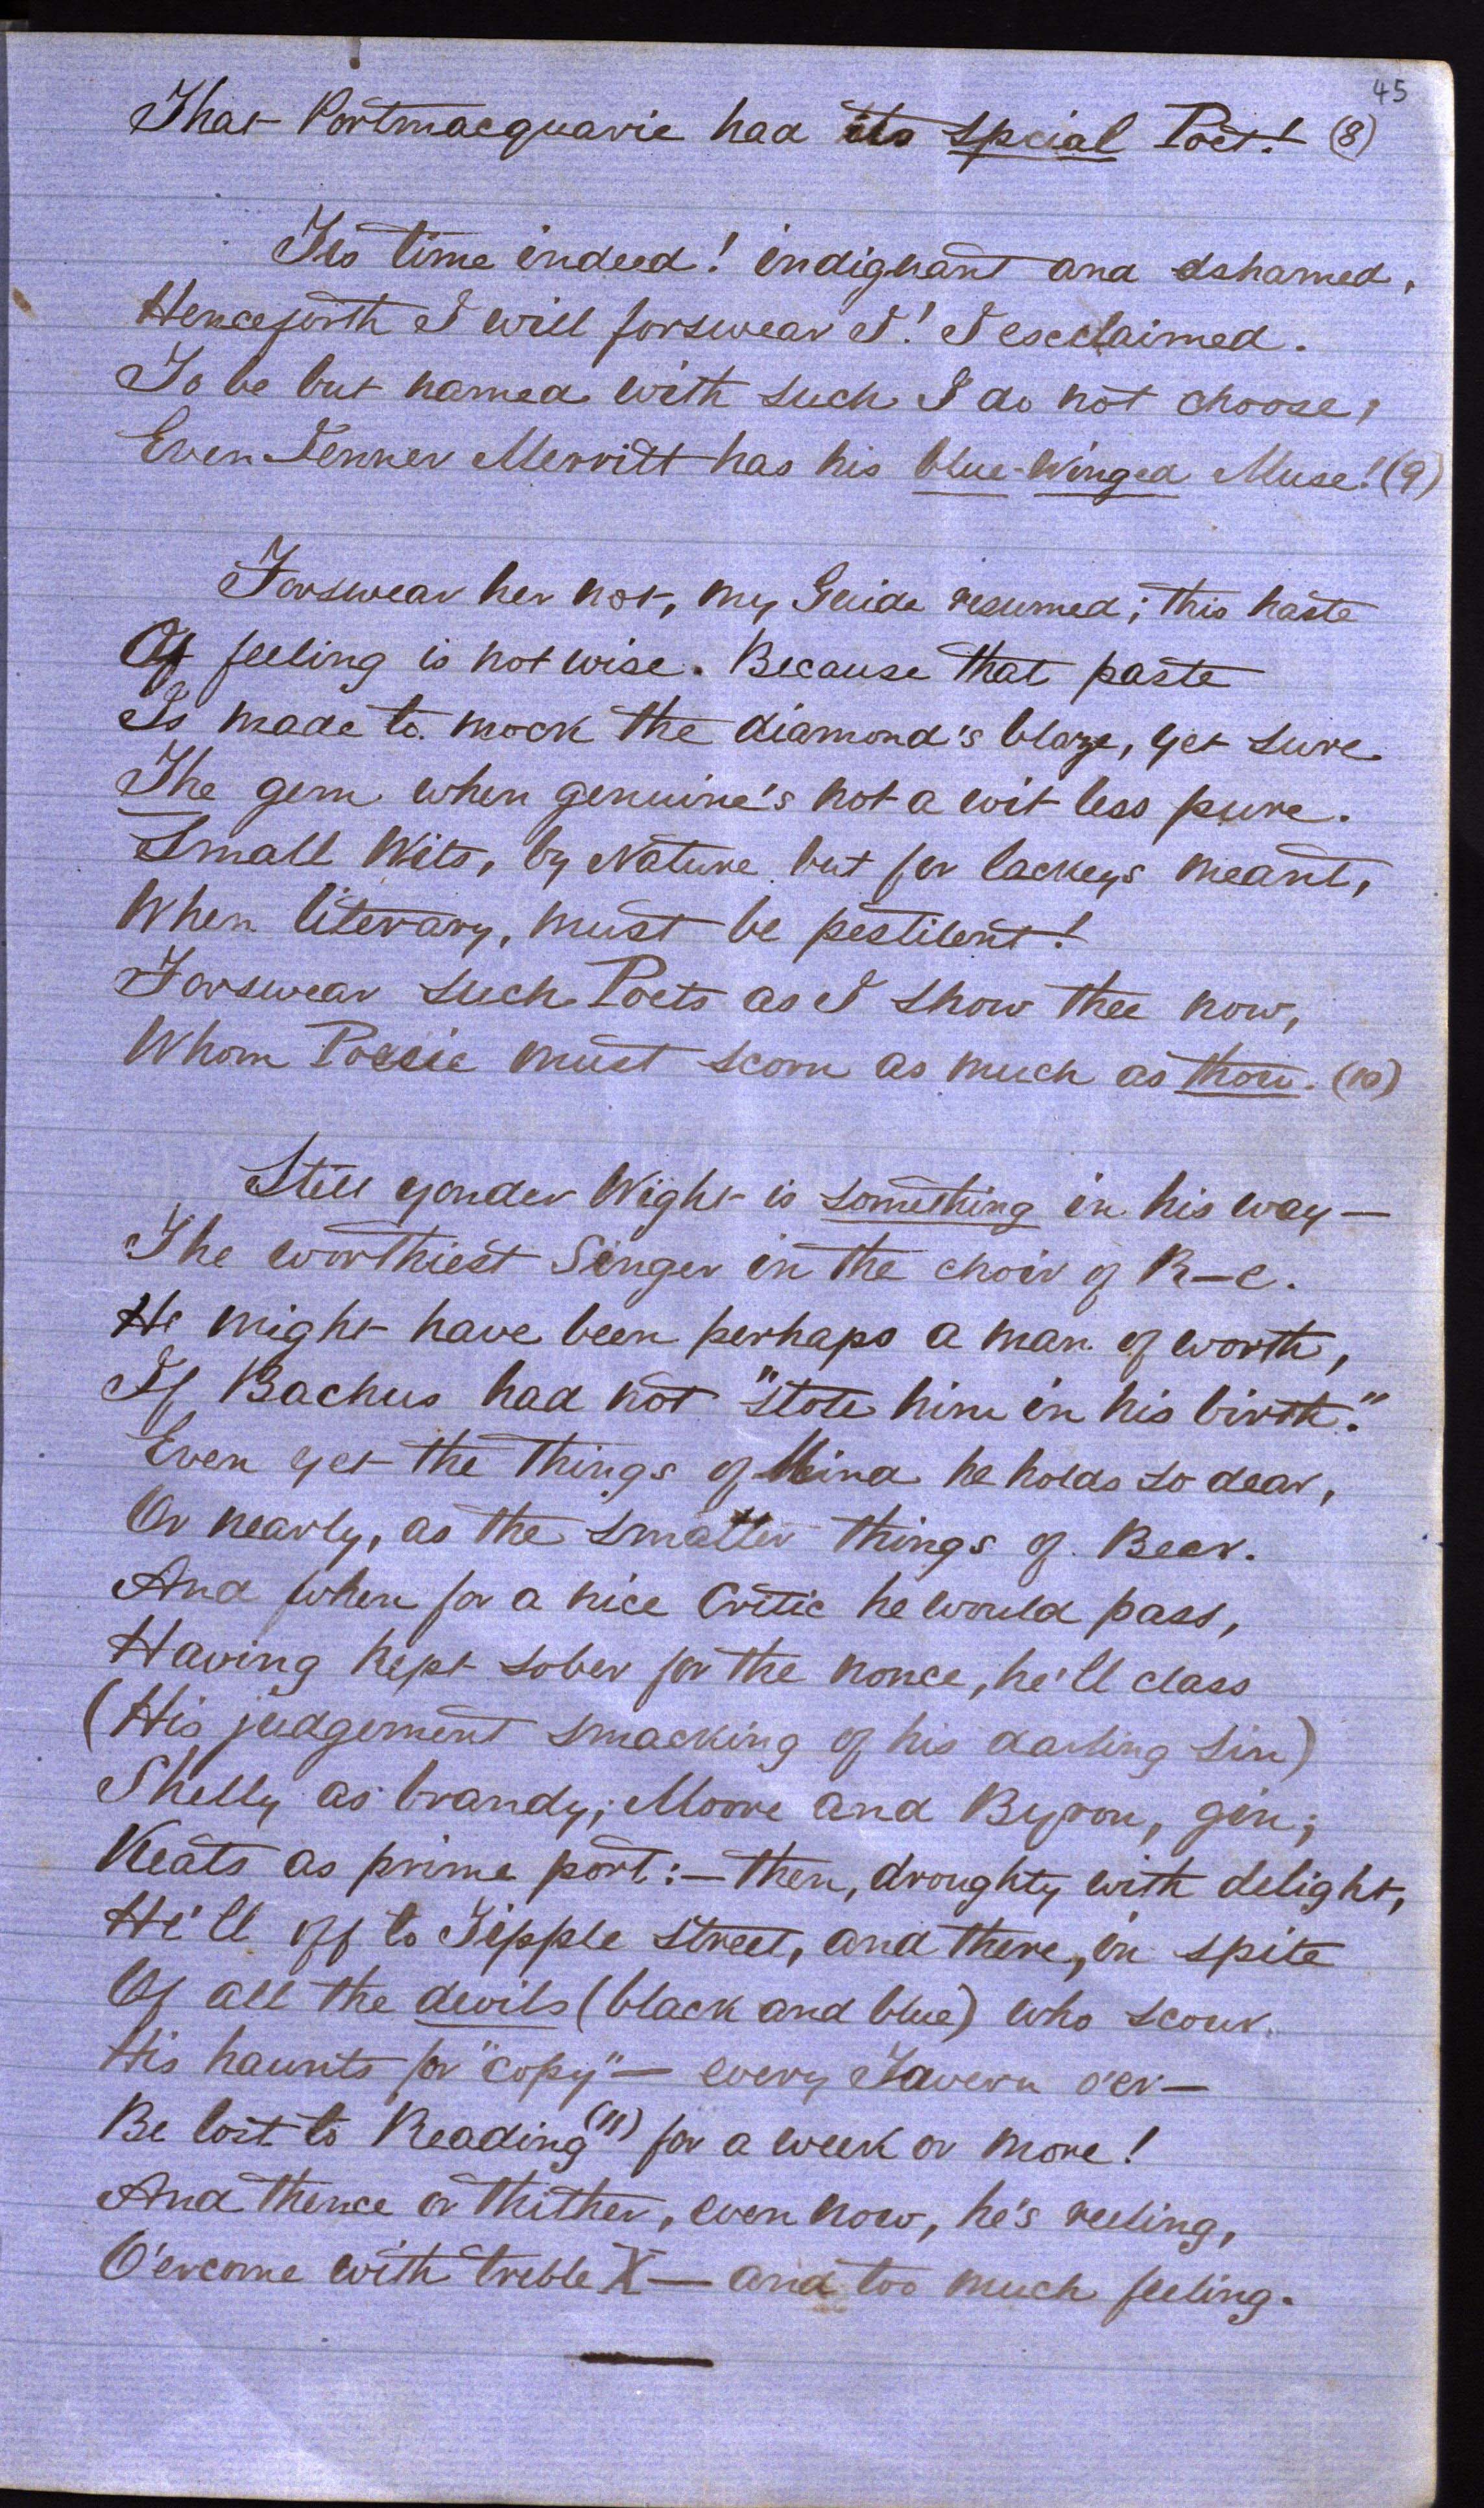 45
That Portmacquarie had its spcial Poet! (8)
Tis time indeed! indignant and ashamed,
Henceforth I will forswear I! I excclaimed.
To be but named with such I do not choose,
Even Jenner Merritt has his blue-winged Muse! (9)
Forswear her not, my Guide resumed; this haste
Of feeling is not wise. Because that paste
Is made to mock the diamond's blaze, yet sure
The gem when genuine's not a wit less pure.
Small Wits, by Nature but for lackeys meant,
When literary, must be pestilent!
Forswear such Poets as I show thee now,
Whom Poesie must scorn as much as thou. (10)
Still yonder Wight is something in his way—
The worthiest Singer in the choir of R—e.
He might have been perhaps a man of worth,
If Bachus had not "stole him in his birth."
Even yet the things of Mind he holds so dear,
Or nearly, as the smaller things of Beer.
And when for a nice Critic he would pass,
Having kept sober for the nonce, he'll class
(His judgement smacking of his darling sin)
Shelly as brandy; Moore and Byron, gin;
Keats as prime port:— then, droughty with delight,
He'll off to Tipple street, and there, in spite
Of all the devils (black and blue) who scour
His haunts for "copy"— every Tavern o'er—
Be lost to Reading (11) for a week or more!
And thence or thither, even now, he's reeling,
O'ercome with treble X— and too much feeling.